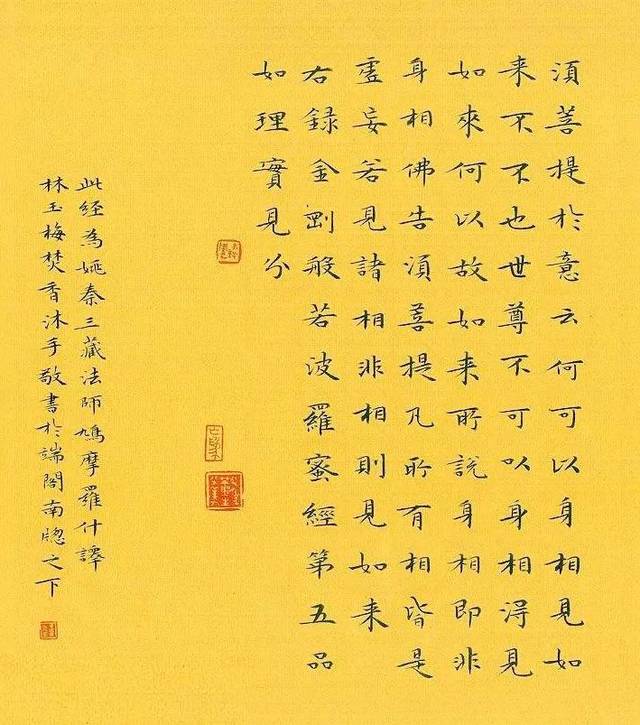 須菩提於意云何可以身相見如
来不不也世尊不可以身相得見
如來何以故如来所說身相即非
身相佛告須菩提凡所有相皆是
虛妄若見諸相非相則見如来
右録金剛般若波羅蜜經第五品
如理實見分
此経為姚秦三藏法師鳩摩羅什譯
林玉梅焚香沐手敬書於端閣南牕之下